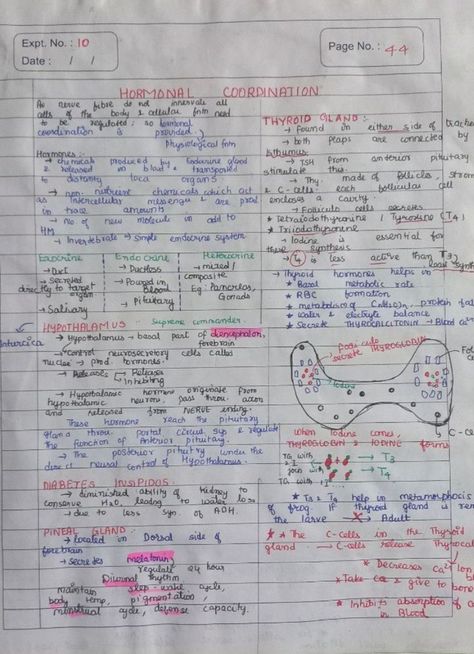 Expt. No. : 10
Date : / /
Page No. : 44
HORMONAL COORDINATION
As nerve fibre do not innervate all
cells of the body & cellular fntn need
to be regulated; so hormonal
coordination is provided,
Physiological fntn
Hormones:-
→ chemicals produced by Endocrine gland
& released in blood & transported
to distantly loca organs
→ non-nutrient chemicals which act
as intercellular messenger & are prod
in trace amounts
→ no of new molecule in add to
HM
→ Invertebrate → simple endocrine system
Exocrine
→ Duct
→ Secreted
directly to target
organ
→ Salivary
Endocrine
→ Ductless
→ Poured in
Blood
→ Pituitary
Heterocrine
→ mixed/
composite
Eg: Pancreas,
Gonads
HYPOTHALAMUS Supreme commander.
→ Hypothalamus → basal part of diencephalon,
forebrain
→ Control neurosecretory cells called
nuclei → prod. hormones.
→ Releases → Releases
Inhibiting
→ Hypothalamic hormone originate from
hypothalamic neurons, pass thru. axon
and released from NERVE ending.
These hormone reach the pituitary
gland throu. portal circu. sys & regulate
the function of Anterior pituitary.
→ The posterior pituitary under the
direct neural control of Hypothalamus.
DIABETES INSIPIDUS
→ diminished ability of kidney to
conserve H2O, leading to water loss
→ due to less syn. of ADH.
PINEAL GLAND:
→ located in Dorsal side of
forebrain
→ secretes melatonin
regulate 24 hour
Diurnal rhythm
Maintain sleep-wake cycle,
body temp, pigmentation,
menstrual cycle, defense capacity.
THYROID GLAND:-
→ Found in either side of trachea
→ both flaps are connected by
Isthumus
→ TSH from anterior pituitary
stimulate this.
→ Thy. made of follicles,
& C-cells. each follicular cell
encloses a cavity.
→ Follicular cells secretes
* Tetraiodothyronine / Tyroxine (T4)
* Triiodothyronine
→ Iodine is essential for
there synthesis
→ T4 is less active than T3
→ Thyroid hormones helps in
* Basal metabolic rate
* RBC formation
* metabolism of Carbs,
* water & electrolyte balance
* secrete THYROCALCITONIN →
follicular
secrete THYROGLOBIN
Iodine
When Iodine comes,
THYROGLOBIN → IODINE forms
TG with
join with → T3
TG with → T4
* T3 & T4 help in metamorphosis
of frog. If thyroid gland is
the larvae ✗→ Adult
* * The C-cells in the Thyroid
gland → C-cells release
* Decreases Ca2+
* Take Ca & give to bone
* Inhibits absorption of
in Blood